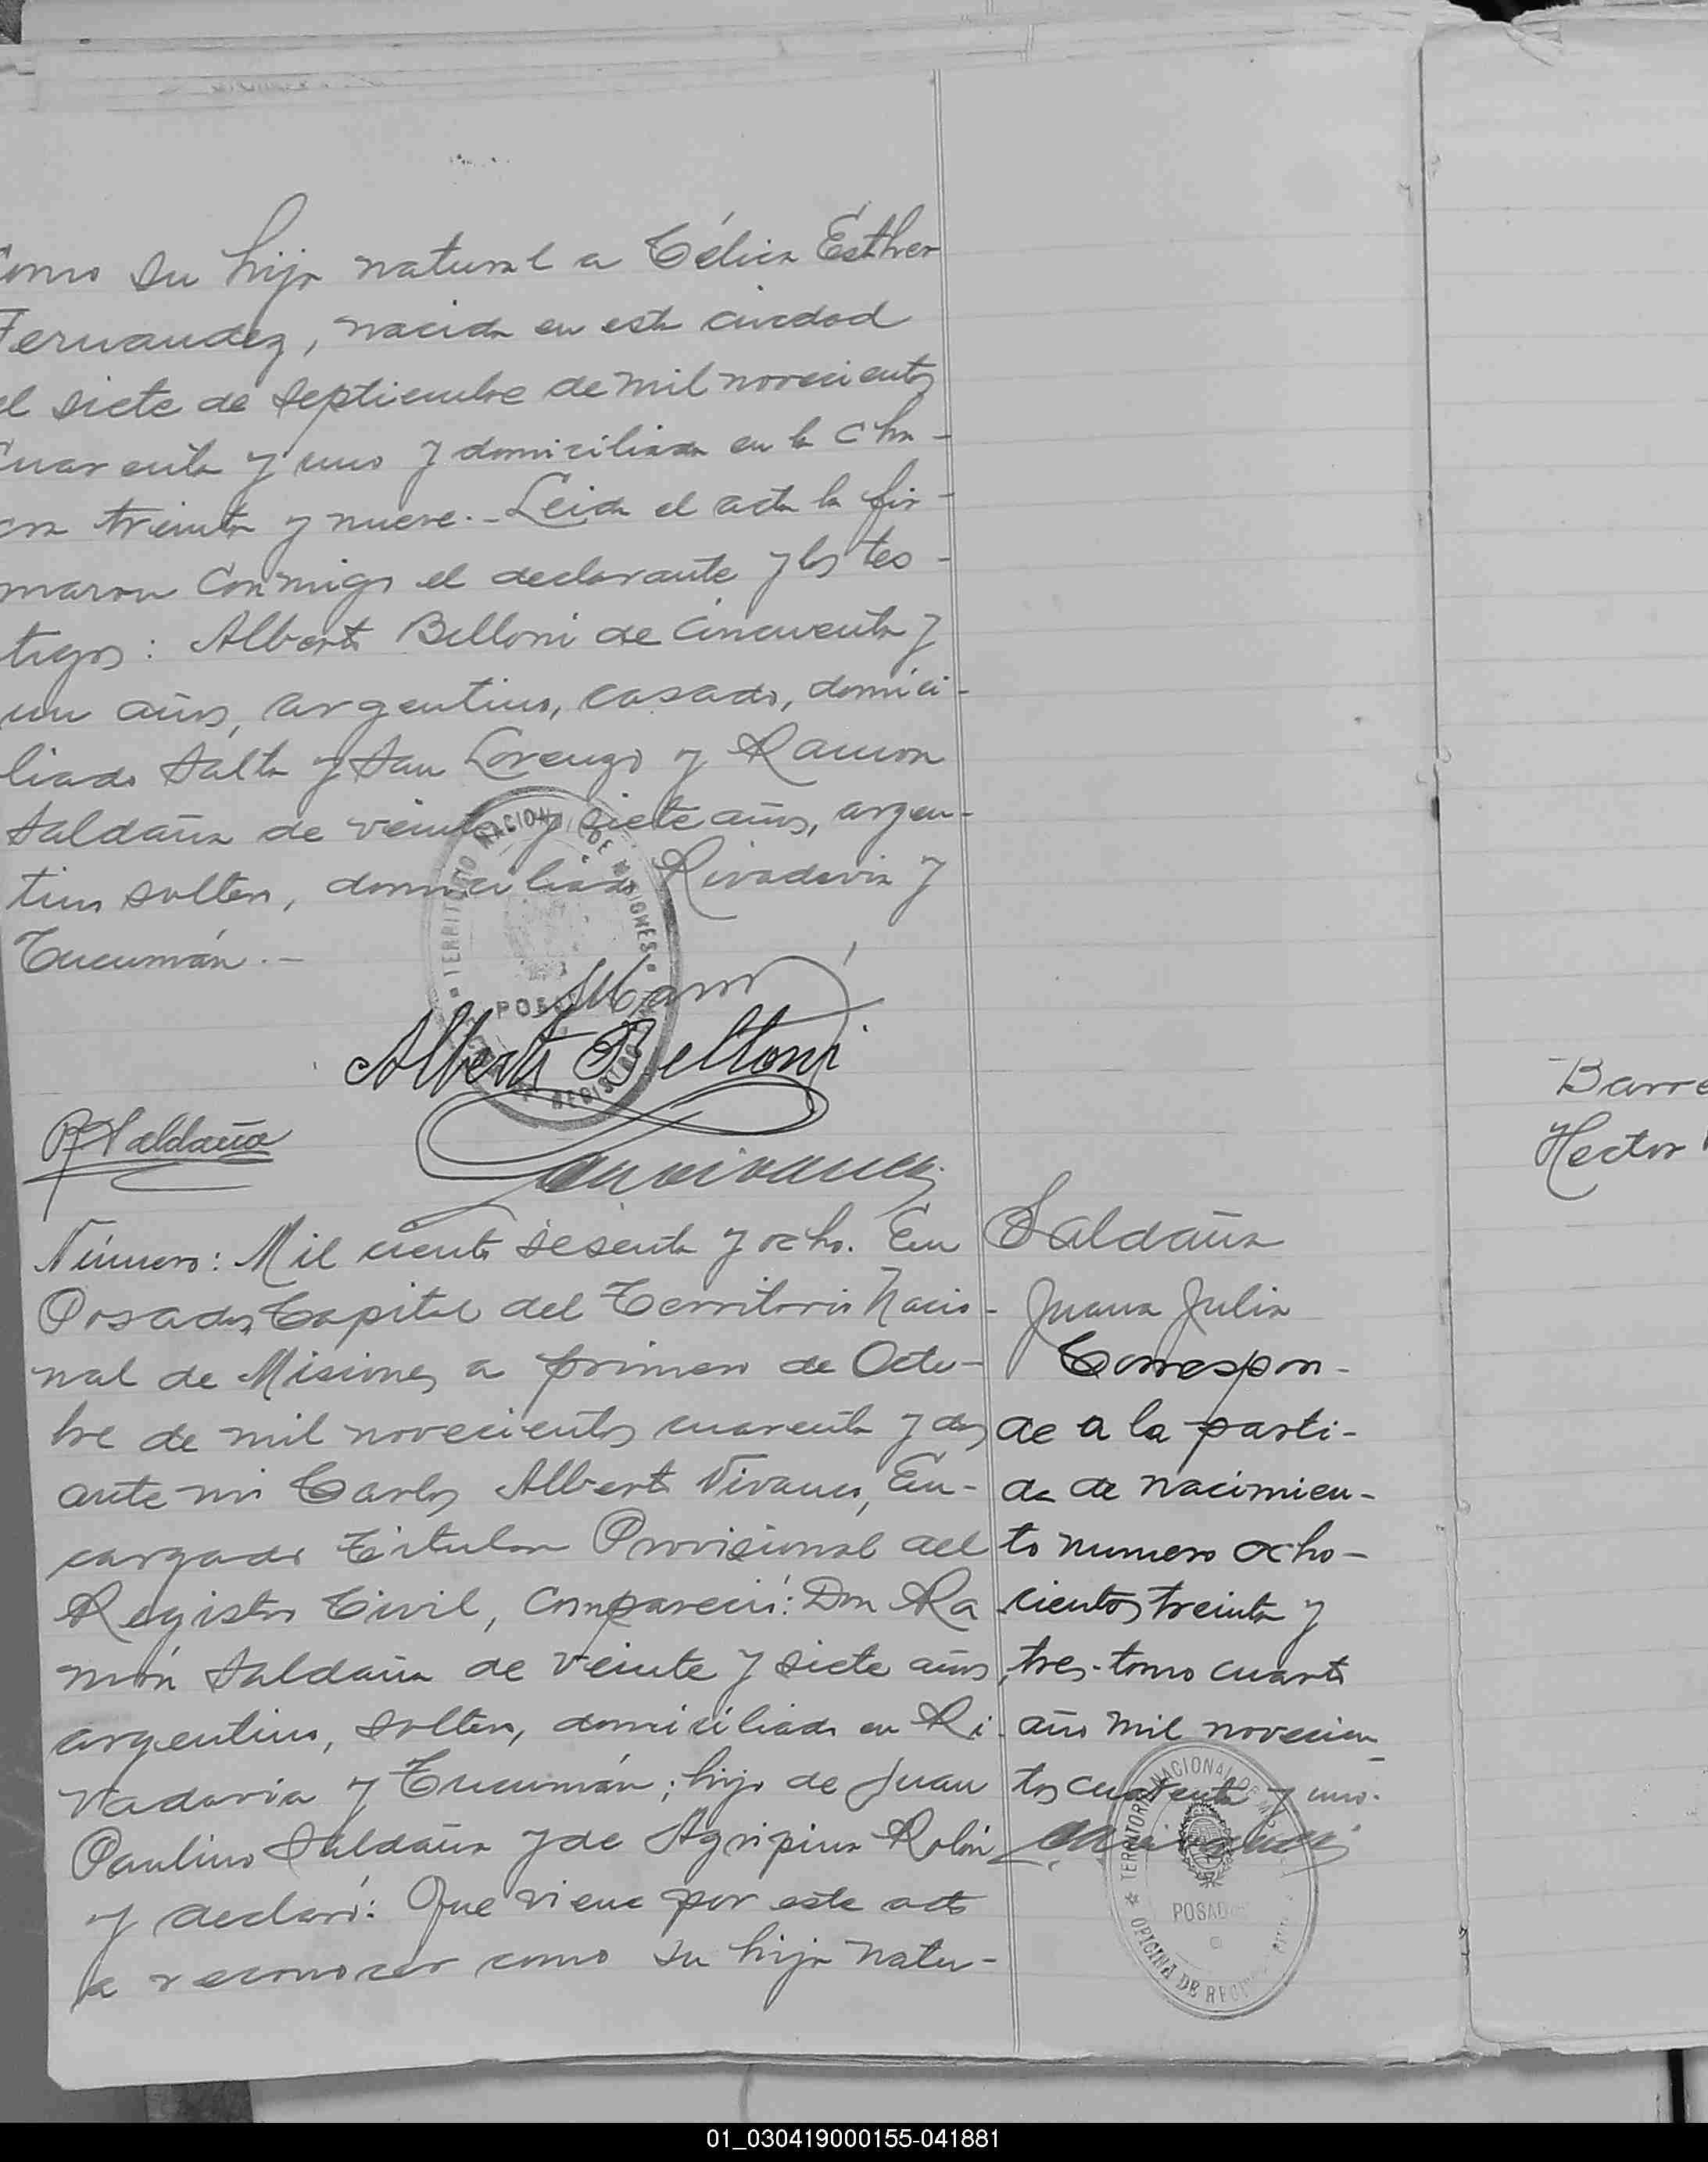 como su hija natural a Célica Esther
Fernandez, nacida en esta ciudad
el siete de Septiembre de mil novecientos
cuarenta y uno y domiciliada en la cha-
cra treinta y nueve.- Leida el acta la fir-
maron conmigo el declarante y los tes-
tigos: Alberto Belloni de cincuenta y
un años, argentino, casado, domici-
liado Salta y San Lorenzo y Ramon
Saldaña de veinte y siete años, argen-
tino soltero, domiciliado Rivadavia y
Tucumán.-
TERRITORIO NACIONAL DE MISIONES
POSADAS
Alberto Belloni
R Saldaña
Número: Mil ciento sesenta y ocho. En
Posadas Capital del Territorio Nacio-
nal de Misiones a primero de Octu-
bre de mil novecientos cuarenta y dos
ante mi Carlos Alberto Vivanco, En-
cargado Titular Provisional del
Registro Civil, Compareció: Don Ra
món Saldaña de veinte y siete años,
argentino, soltero, domiciliado en Ri-
vadavia y Tucumán; hijo de Juan
Paulino Saldaña y de Agripina Rolón
y declaró: Que viene por este acto
a reconocer como su hija natu-
Saldaña
Juana Julia
Correspon-
de a la parti-
da de nacimien-
to numero ocho-
cientos treinta y
tres-tomo cuarto
año mil novecien-
tos cuarenta y uno.
TERRITORIO NACIONAL DE MISIONES
POSADAS
OFICINA DE REGISTRO CIVIL
Barre
Hector
01_030419000155-041881